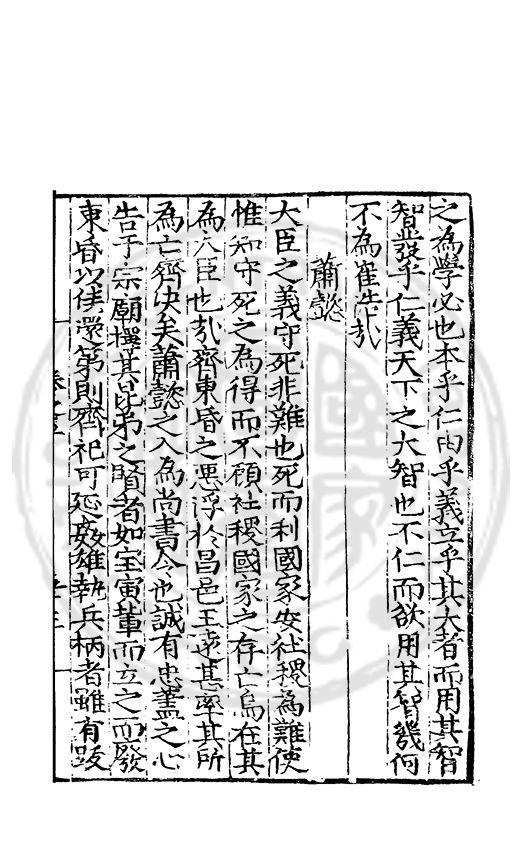 之為學必也本乎仁由乎義立乎其大者而用其智
智發乎仁義天下之大智也不仁而欲用其智幾何
不為崔浩哉
蕭懿
大臣之義守死非難也死而利國家安社稷為難使
惟知守死之為得而不顧社稷國家之存亡烏在其
為大臣也哉齊東昏之惡浮於昌邑王遠甚率其所
為亡齊决矣蕭懿之入為尚書令也誠有忠藎之心
告于宗廟擇其昆弟之賢者如宝寅軰而立之而發
東昏以侯還第則齊祀可延姦雄執兵柄者雖有跋